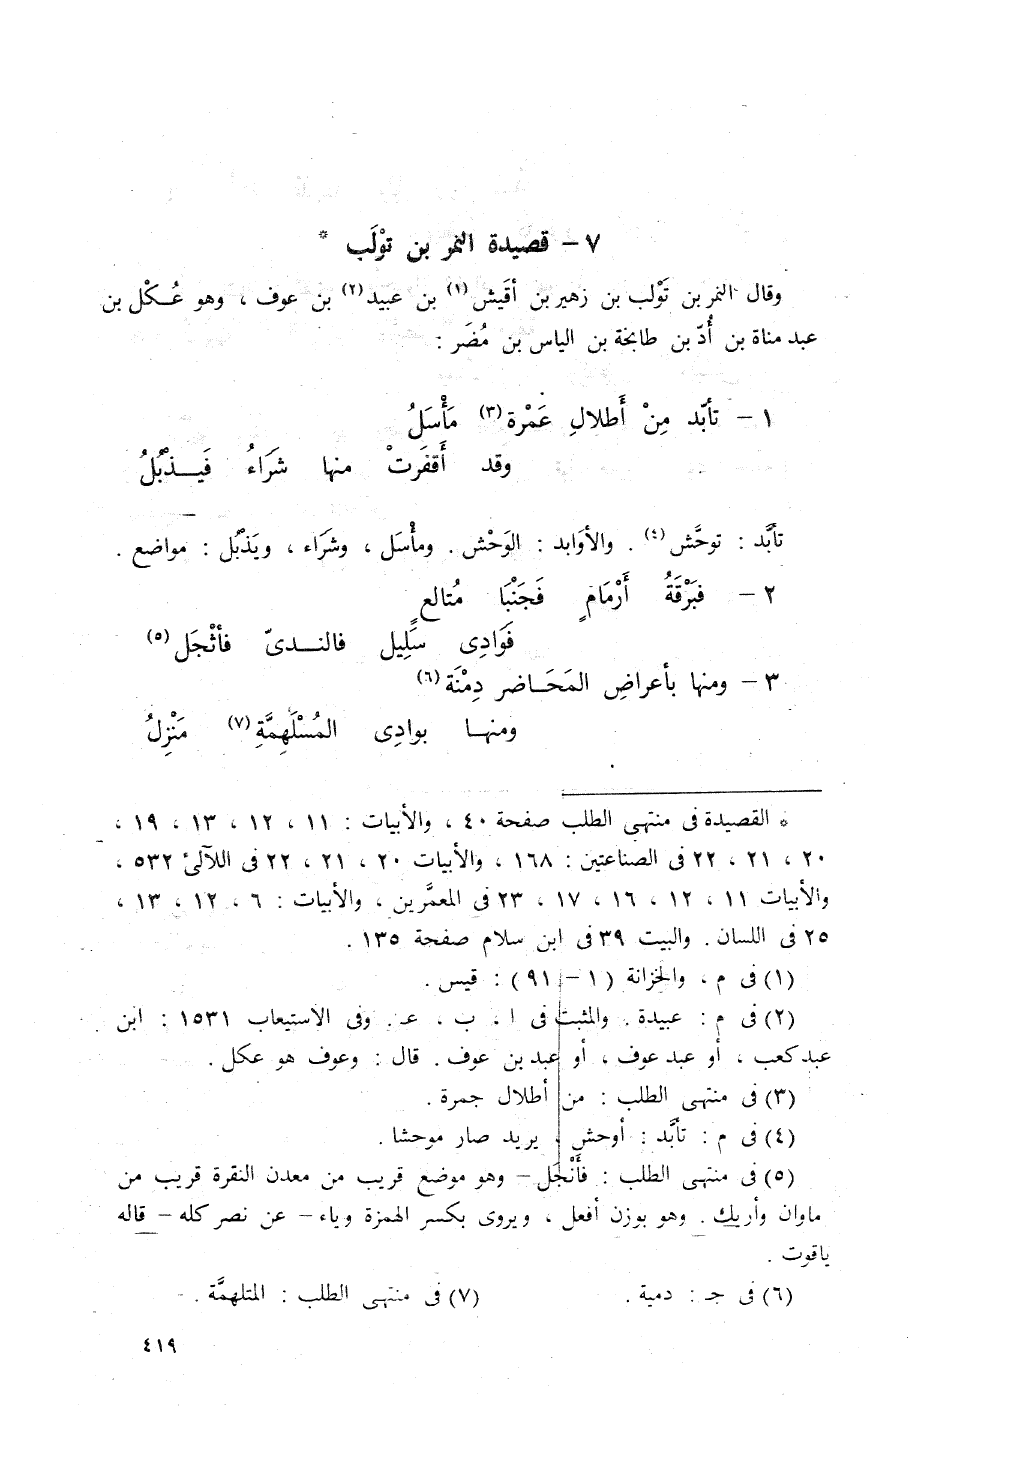 ٧ – قصيدة النمر بن توْلَب *
وقال النمر بن تَوْلب بن زهير بن أقَيش (١) بن عبيد (٢) بن عوف ، وهو عُـكْل بن
عبد مناة بن أُدّ بن طابخة بن الياس بن مُضَر :
١ – تأبّد مِنْ أَطلالِ عَمْرة (٣) مَأْسَلُ
وقد أَقفَرتْ منها شَرَاءُ فَيـذْبُلُ
تأبَّد : توحَّش (٤) . والأوَابد : الوَحْش . ومأْسَل ، وشَرَاء ، ويَذْبُل : مواضع .
٢ – فبَرْقَةُ أَرْمَامٍ فَجَنْبَا مُتالعٍ
فَوَادِى سَلِيل فالنـدىّ فأثْجَل (٥)
٣ – ومنها بأعراضِ المَحَـاضر دِمْنَة (٦)
ومنهـا بوادِى المُسْلَهِمَّةِ (٧) مَنْزِلُ
* القصيدة فى منتهى الطلب صفحة ٤٠ ، والأبيات : ١١ ، ١٢ ، ١٣ ، ١٩ ،
٢٠ ، ٢١ ، ٢٢ فى الصناعتين : ١٦٨ ، والأبيات ٢٠ ، ٢١ ، ٢٢ فى اللآلئ ٥٣٢ ،
والأبيات ١١ ، ١٢ ، ١٦ ، ١٧ ، ٢٣ فى المعمَّرين ، والأبيات : ٦ ، ١٢ ، ١٣ ،
٢٥ فى اللسان . والبيت ٣٩ فى ابن سلام صفحة ١٣٥ .
(١) فى م ، والخزانة ( ١ – ٩١ ) : قيس .
(٢) فى م : عبيدة . والمثبت فى ا ، ب ، عـ . وفى الاستيعاب ١٥٣١ : ابن
عبد كعب ، أو عبد عوف ، أو عبد بن عوف . قال : وعوف هو عكل .
(٣) فى منتهى الطلب : من أطلال جمرة .
(٤) فى م : تأبَّد : أوحش ، يريد صار موحشا .
(٥) فى منتهى الطلب : فأَنْجَل – وهو موضع قريب من معدن النقرة قريب من
ماوان وأريك . وهو بوزن أفعل ، ويروى بكسر الهمزة وياء – عن نصر كله – قاله
ياقوت .
(٦) فى جـ : دمية . (٧) فى منتهى الطلب : المتلهمَّة .
٤١٩